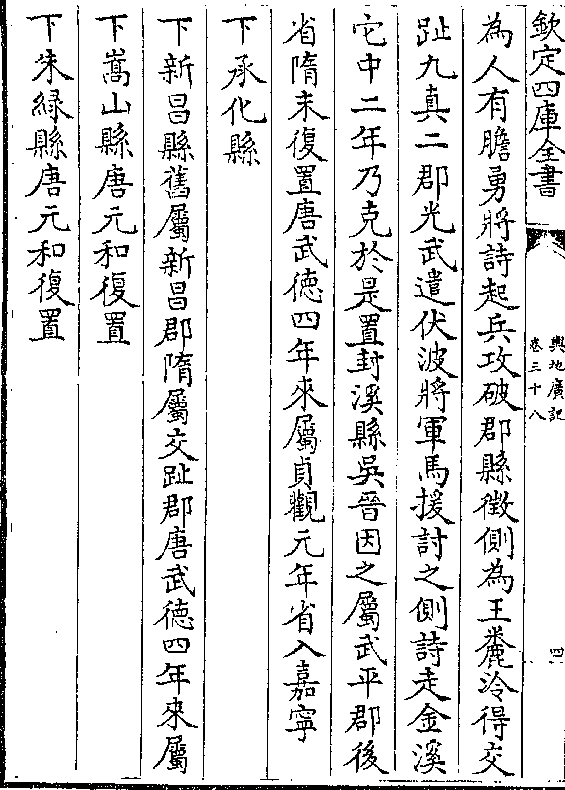 欽定四庫全書
輿地廣記
卷三十八
四
為人有膽勇將詩起兵攻破郡縣徵側為王麊泠得交
趾九真二郡光武遣伏波將軍馬援討之側詩走金溪
它中二年乃克於是置封溪縣吳晉因之屬武平郡後
省隋末復置唐武德四年來屬貞觀元年省入嘉寧
下承化縣
下新昌縣舊屬新昌郡隋屬交趾郡唐武德四年來屬
下嵩山縣唐元和復置
下朱緑縣唐元和復置